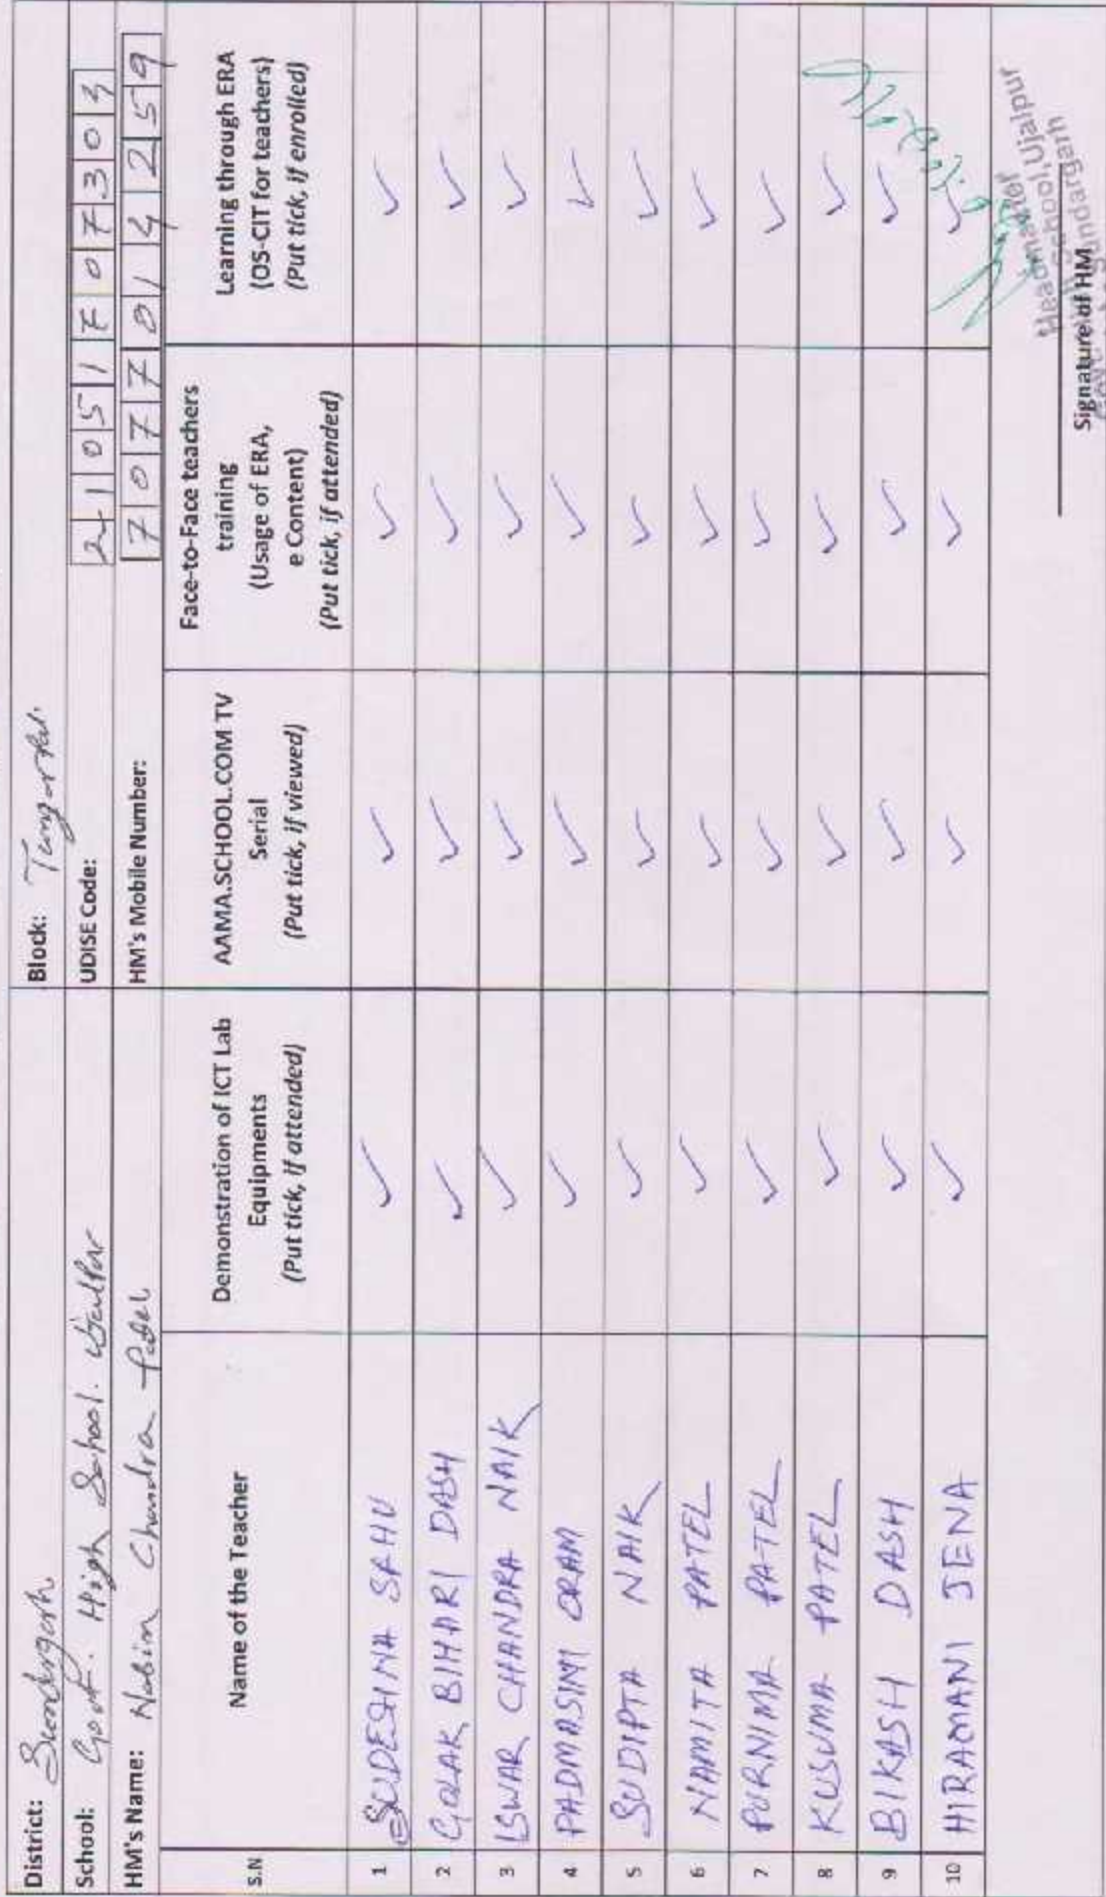 District: Sundergarh Block:
School: Govt. High School. Ujalpur UDISE Code: 21051707303
HM's Name: Nabin Chandra Patel HM's Mobile Number: 7077814259
S.N Name of the Teacher Demonstration of ICT Lab Equipments (Put tick, if attended) AAMA.SCHOOL.COM TV Serial (Put tick, if viewed) Face-to-Face teachers training (Usage of ERA, e Content) (Put tick, if attended) Learning through ERA (OS-CIT for teachers) (Put tick, if enrolled)
1 SUDESHNA SAHU ✓ ✓ ✓ ✓
2 GOLAK BIHARI DASH ✓ ✓ ✓ ✓
3 ISWAR CHANDRA NAIK ✓ ✓ ✓ ✓
4 PADMASINI ORAM ✓ ✓ ✓ ✓
5 SUDIPTA NAIK ✓ ✓ ✓ ✓
6 NAMITA PATEL ✓ ✓ ✓ ✓
7 PURNIMA PATEL ✓ ✓ ✓ ✓
8 KUSUMA PATEL ✓ ✓ ✓ ✓
9 BIKASH DASH ✓ ✓ ✓ ✓
10 HIRAMANI JENA ✓ ✓ ✓ ✓
Headmaster
School, Ujalpur
Sundargarh
Signature of HM